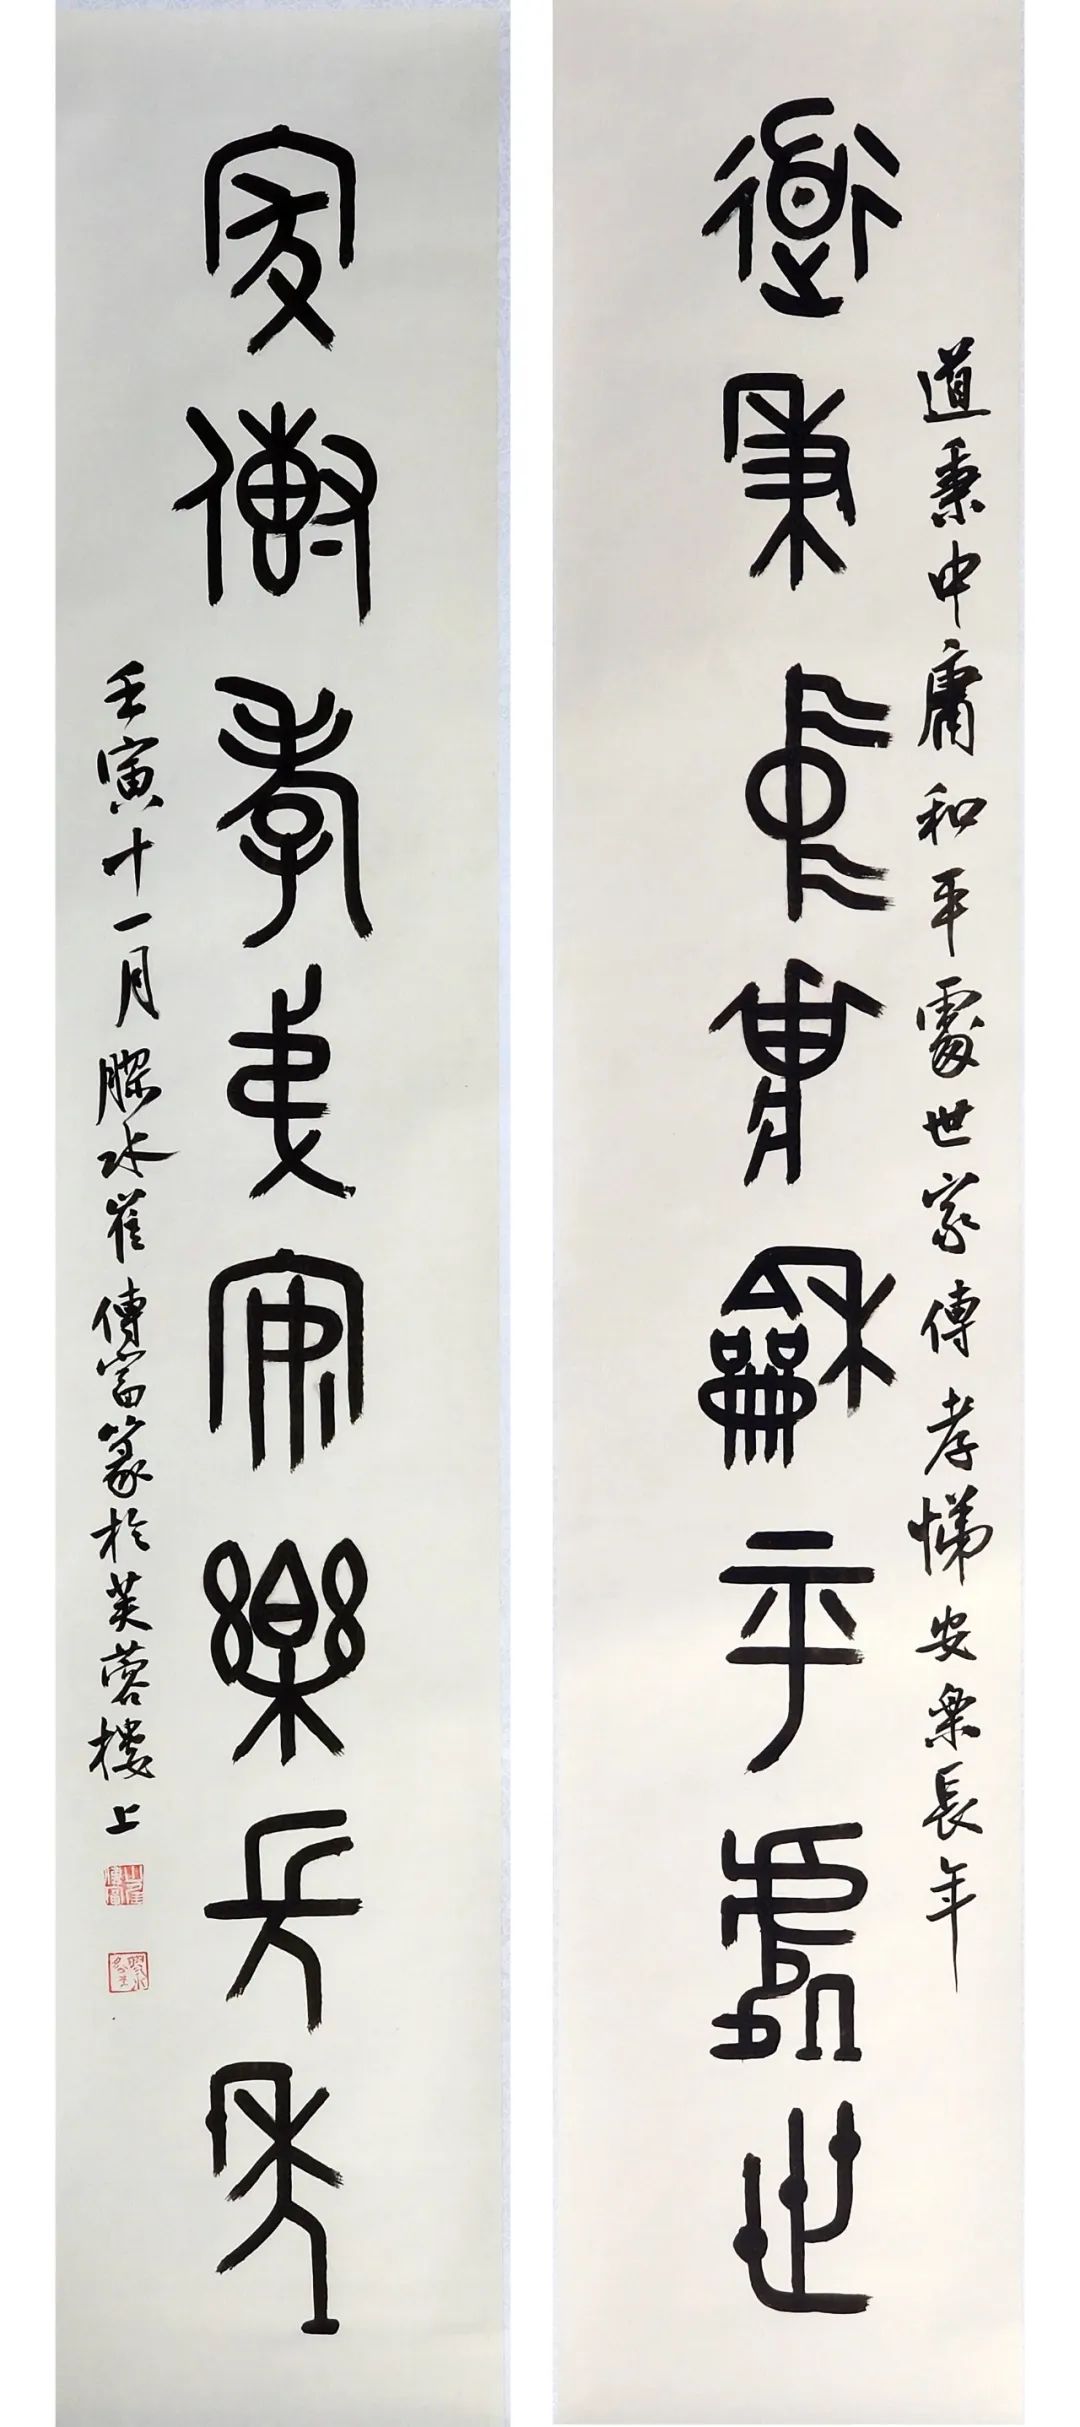 道秉中庸和平處世家傳孝悌安樂長年
道秉中庸龢平處世
家傳孝弟安樂長年
壬寅十一月膠水崔傳富篆於芙蓉樓上